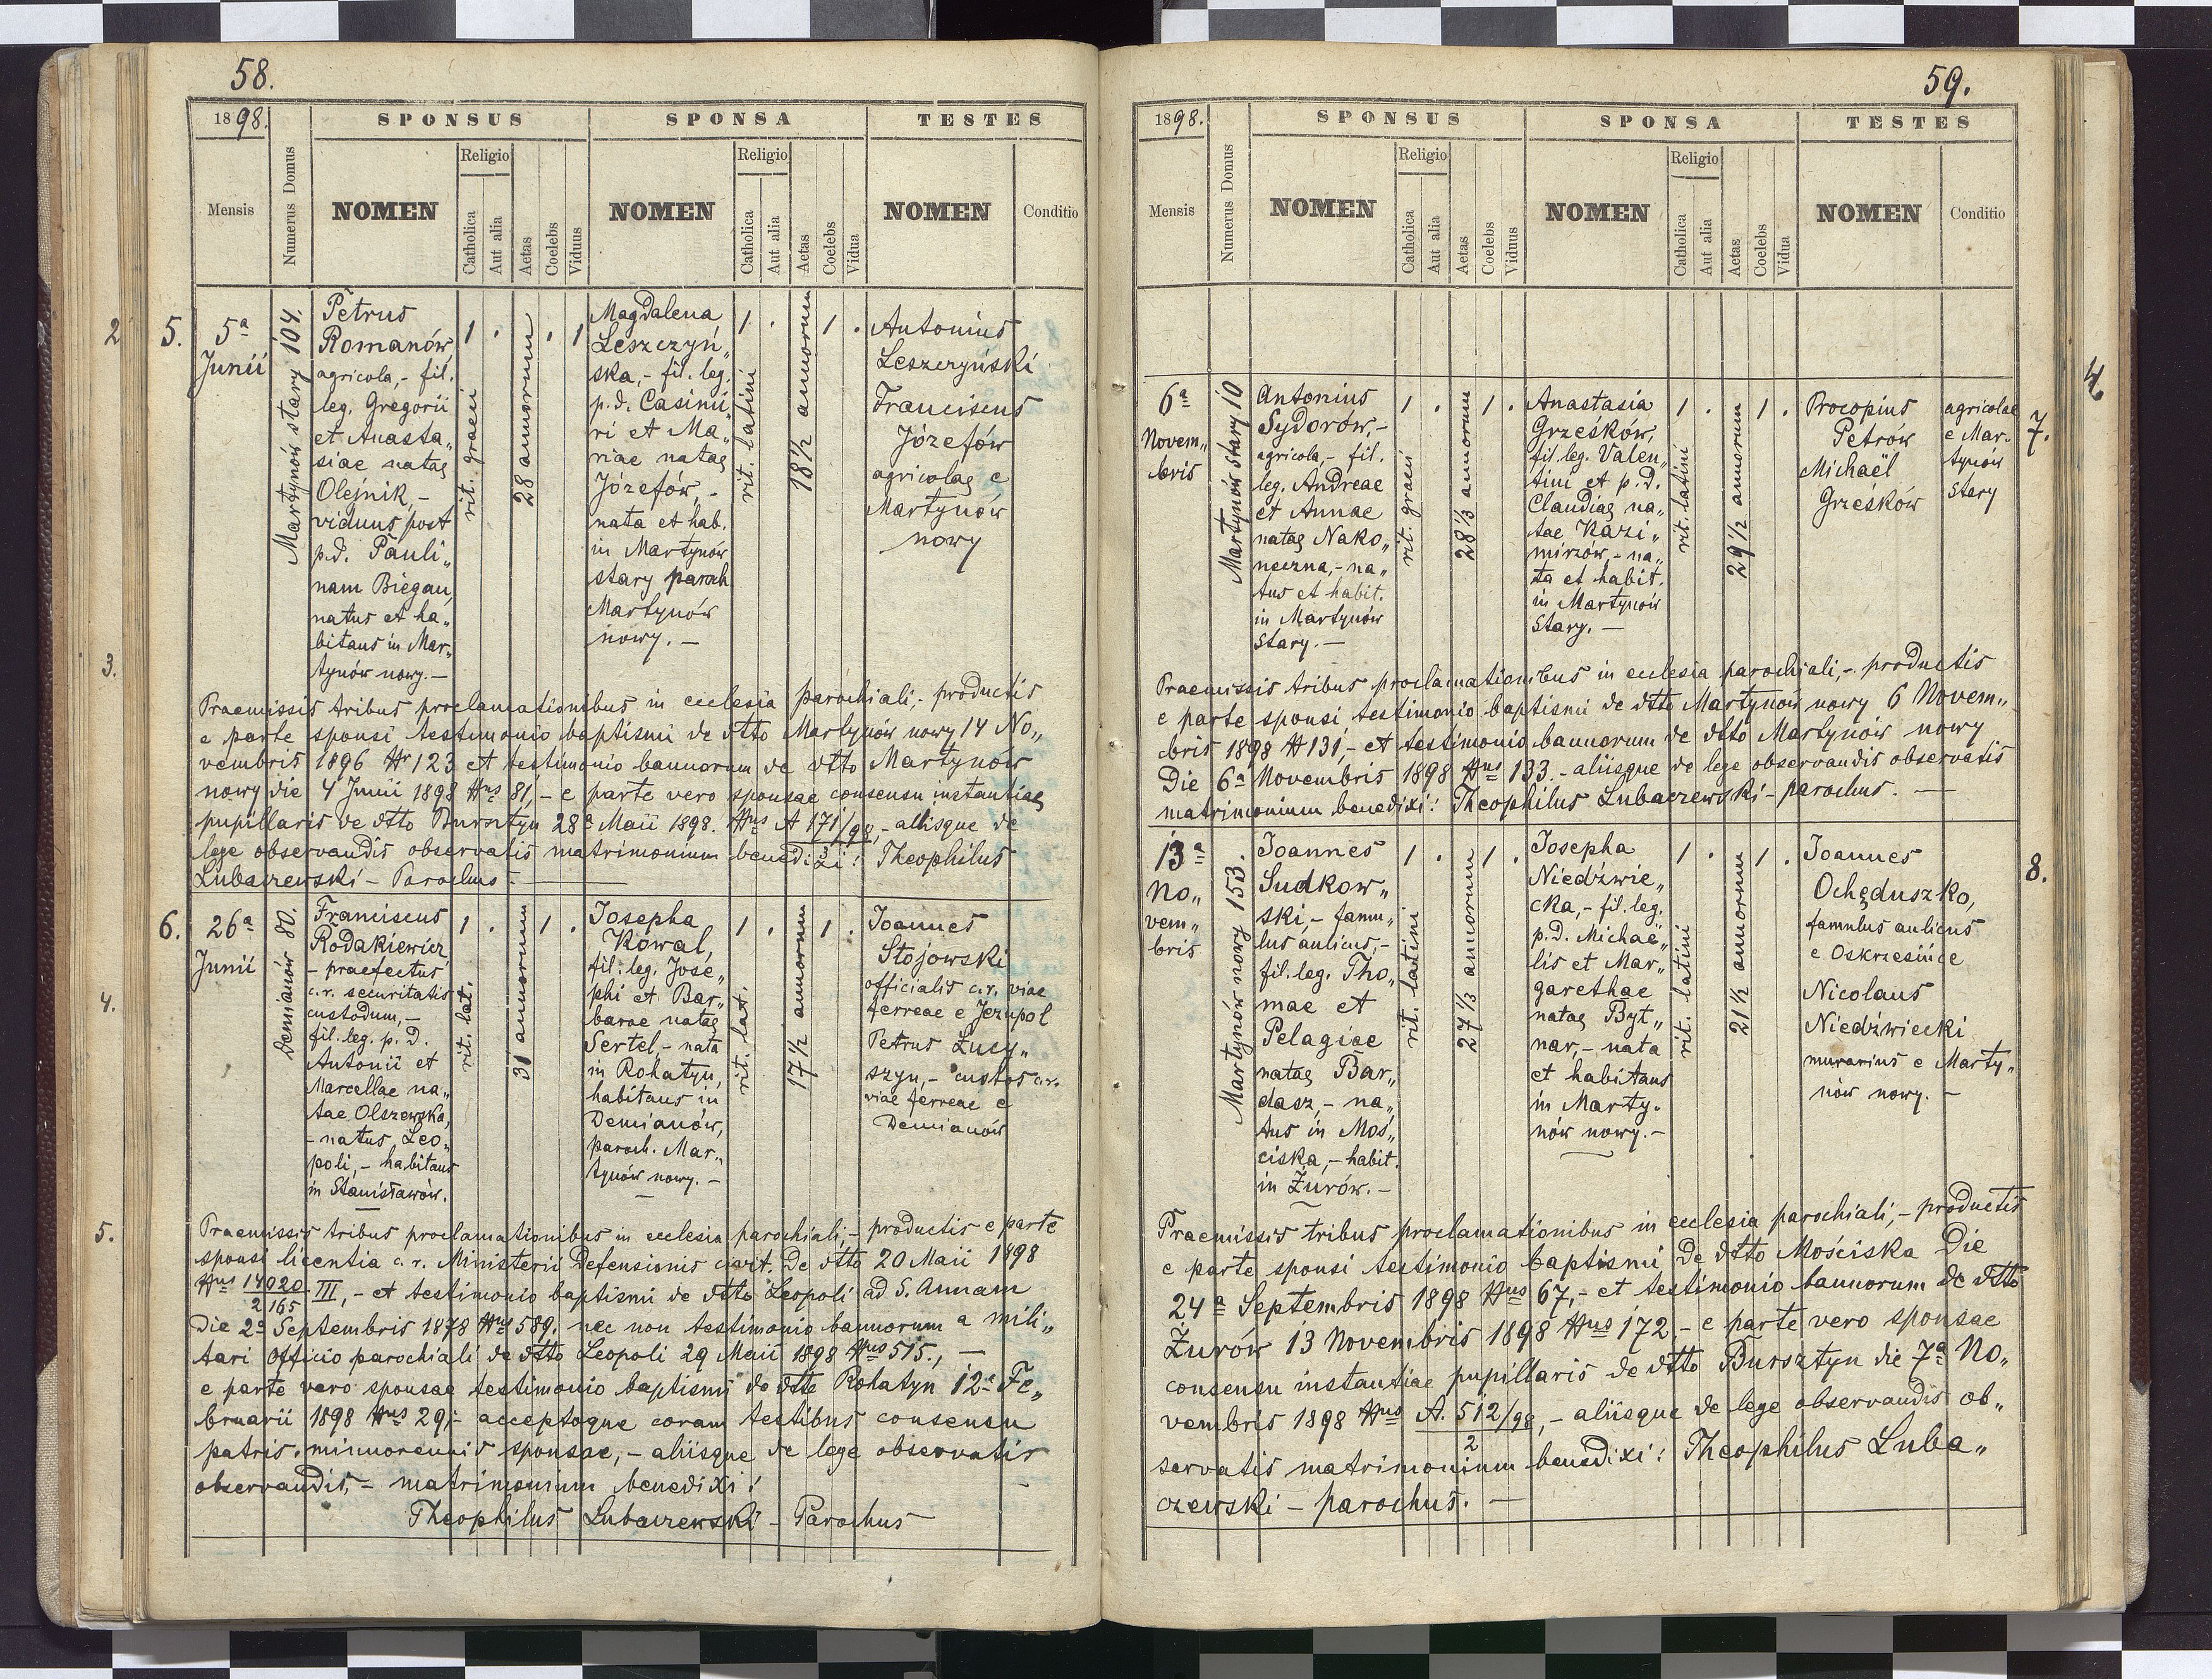 58.
1898.
SPONSUS
SPONSA
TESTES
Mensis
Numerus Domus
NOMEN
Religio
Catholica
Aut alia
Aetas
Coelebs
Viduus
NOMEN
Religio
Catholica
Aut alia
Aetas
Coelebs
Vidua
NOMEN
Conditio
2
3.
4.
5.
5.
5a
Junii
Martynów stary 104.
Petrus
Romanów,
agricola,- fil.
leg. Gregorii
et Anasta„
siae natae
Olejnik,-
viduus post
p.d. Pauli„
nam Biegan,
natus et ha„
bitans in Mar„
tynów nowy.-
1
.
rit. graeci
28 annorum
.
1
Magdalena
Leszczyń„
ska,- fil. leg.
p.d. Casimi„
ri et Ma„
riae natae
Józefów,-
nata et hab.
in Martynów
stary paroch
Martynów
nowy.-
1
.
rit. latini
18 1/2 annorum
1
.
Antonius
Leszczyński
Franciscus
Józefów
agricolae e
Martynów
nowy
Praemissis tribus proclamationibus in ecclesia parochiali,- productis
e parte sponsi testimonio baptismi de dtto Martynów nowy 14 No„
vembris 1896 Nr 123 et testimonio bannorum de dtto Martynów
nowy die 4 Junii 1898 Nus 81,- e parte vero sponsae consensu instantiae
pupillaris de dtto Bursztyn 28a Maii 1898. Nus A 171/98,- aliisque de
3
lege observandis observatis matrimonium benedixi: Theophilus
Lubaczewski - Parochus.-
6.
26a
Junii
Demianów 80.
Franciscus
Rodakiewicz
- praefectus
c.r. securitatis
custodum,-
fil. leg. p. D.
Antonii et
Marcellae na„
tae Olszewska,
- natus Leo„
poli,- habitans
in Stanisławów.
1
.
rit. lat.
31 annorum
1
.
Josepha
Kowal,
fil. leg. Jose„
phi et Bar„
barae natae
Sertel,- nata
in Rohatyn,
habitans in
Demianów,
paroch. Mar„
tynów nowy.-
1
.
rit. lat.
17 1/2 annorum
1
.
Joannes
Stojowski
officialis c.r. viae
ferreae e Jezupol
Petrus Łucy„
szyn,- custos c.r.
viae ferreae e
Demianów
Praemissis tribus proclamationibus in ecclesia parochiali,- productis e parte
sponsi licentia c. r. Ministerii Defensionis civit. De dtto 20 Maii 1898
Nus 14020/2165 III,- et testimonio baptismi de dtto Leopoli ad S. Annam
Die 2a Septembris 1878 Nus 589. nec non testimonio bannorum a mili„
tari Officio parochiali de dtto Leopoli 29 Maii 1898 Nus 515.,-
e parte vero sponsae testimonio baptismi de dtto Rohatyn 12a Fe„
bruarii 1898 Nus 29;- acceptoque coram testibus consensu
patris minorennis sponsae,- aliisque de lege observatis
observandis,- matrimonium benedixi:
Theophilus Lubaczewski - Parochus
59.
1898.
SPONSUS
SPONSA
TESTES
Mensis
Numerus Domus
NOMEN
Religio
Catholica
Aut alia
Aetas
Coelebs
Viduus
NOMEN
Religio
Catholica
Aut alia
Aetas
Coelebs
Vidua
NOMEN
Conditio
4
6a
Novem„
bris
Martynów stary 10
Antonius
Sydorów,-
agricola,- fil.
leg. Andreae
et Annae
natae Nako„
neczna,- na„
tus et habit.
in Martynów
stary.-
1
.
rit. graeci
28 1/3 annorum
1
.
Anastasia
Grześków,
fil. leg. Valen„
tini et p. D.
Claudiae na„
tae Kazi„
mirzów,- na„
ta et habit.
in Martynów
stary.-
1
.
rit. latini
29 1/2 annorum
1
.
Procopius
Petrów
Michaël
Grześków
agricolae
e Mar„
tynów
stary
7.
Praemissis tribus proclamationibus in ecclesia parochiali,- productis
e parte sponsi testimonio baptismi de dtto Martynów nowy 6 Novem„
bris 1898 N 131,- et testimonio bannorum de dtto Martynów nowy
Die 6a Novembris 1898 Nus 133.- aliisque de lege observandis observatis
matrimonium benedixi: Theophilus Lubaczewski - parochus.-
13a
No„
vem„
bris
Martynów nowy 153.
Joannes
Sudkow„
ski,- famu„
lus aulicus,-
fil. leg. Tho„
mae et
Pelagiae
natae Bar„
dasz,- na„
tus in Moś„
ciska,- habit.
in Żurów.-
1
.
rit. latini
27 1/3 annorum
1
.
Josepha
Niedźwie„
cka,- fil. leg.
p. D. Michaë„
lis et Mar„
garethae
natae Byt„
nar,- nata
et habitans
in Marty„
nów nowy.-
1
.
rit. latini
21 1/2 annorum
1
.
Joannes
Ochęduszko,
famulus aulicus
e Oskrzesińce
Nicolaus
Niedźwiecki
murarius e Marty„
nów nowy.-
8.
Praemissis tribus proclamationibus in ecclesia parochiali,- productis
e parte sponsi testimonio baptismi De dtto Mościska Die
24a Septembris 1898 Nus 67,- et testimonio bannorum de dtto
Żurów 13 Novembris 1898 Nus 172,- e parte vero sponsae
consensu instantiae pupillaris de dtto Bursztyn die 7a No„
vembris 1898 Nus A. 512/98,- aliisque de lege observandis ob„
2
servatis matrimonium benedixi: Theophilus Luba„
czewski - parochus.-